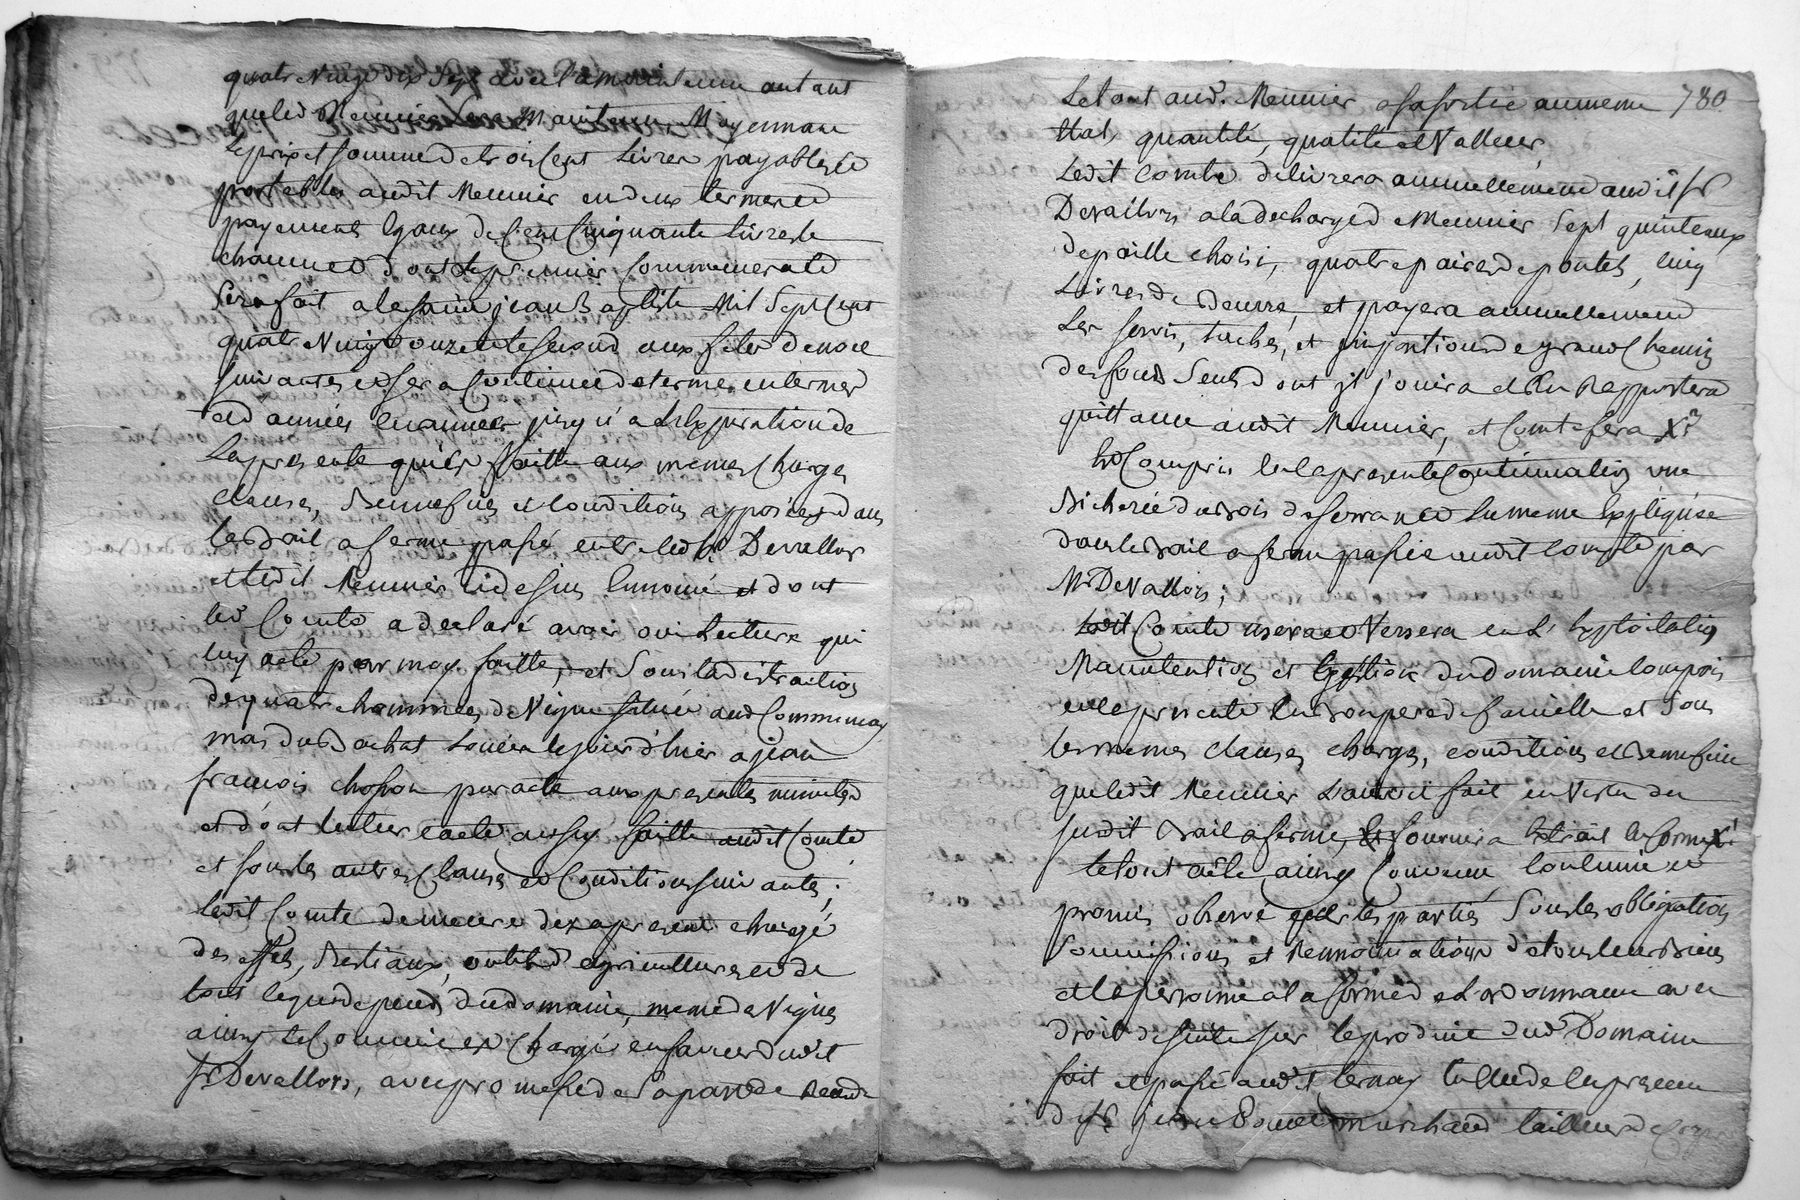 quatre Vingt dix Sept avec la maintenue autant
queled Meunier Sera Maintenu Moyennant
Leprix et somme de trois Cent Livres payables et
portables audit Meunier en deux termes et
payements Egaux de Cent Cinquante Livres le
chaucun dont Le premier Commencera et
Sera fait a la saint jean Baptiste Mil Sept Cent
quatre Vingt onze et le second aux fetes de noel
suivantes et sera Continué de terme en terme
et d années en années jusqu'a a L'expiration de
La presente qui est faitte aux memes Charges
clauses, Bennefices et conditions apposées dans
le Bail a ferme passé entre led Sr Devallors
et Ledit Meunier cidessus Ennoncé et dont
led Comte a declaré avoir oui Lecture qui
luy a eté par moy faitte, et Sous la distraction
de quatre hommées de Vigne située aud Communay
mas du Bachat Louée le jour d'hier a jean
françois chosson par acte aux presentes minutes
et dont lecture a eté aussy faitte audit Comte
et sous les autres Clauses et Conditions suivantes ;
Ledit Comte demeure dez apresent chargé
des effets, Bestiaux, outils d'agriculture et de
tout ce qui depend dud domaine, meme des Vignes
ainsy Le Commencé Chargé en faveur dudit
Sr Devallors, avec promesse de Sa part de Rendre
Le tout aud. Meunier a sa sortie au meme 780
Etat, quantité, qualité et Valleur,
Ledit Comte delivrera annuellement audit Sr
Devallors a la decharge de Meunier Sept quinteaux
de paille choisi, quatre paires de poulets, cinq
Livres de Beurre, et payera annuellement
Les servis, taches, et impositions de grand Chemin
des fonds Seuls dont il jouira et En Rapportera
quittance audit Meunier, et Comte sera X?
Est Compris En la presente Continuation une
Bicherée du Bois de ferrand Lu meme Expliquée
dans le Bail a ferme passé audit Comte par
Mr Devallors ;
Ledit Comte usera et Versera en L'Exploitation
Manutention et Gestion dud domaine Compris
en la presente En Bon pere de famille et Sous
les memes clauses charges, conditions et Bennefices
que ledit Meunier L'auroit fait en Vertu du
susdit Bail a ferme, Et fournira Extrait En forme X!
Le tout a eté ainsy Convenu Consenti et
promis observé par les parties Sous les obligations
Soumissions et Rennonciations de tous leurs Biens
et la personne a la forme de L'ordonnance avec
droit de suite sur le produit dud Domaine
fait et passé audit Ternay Estude En presence
de Sr jean Bonnet marchand tailleur de Corps